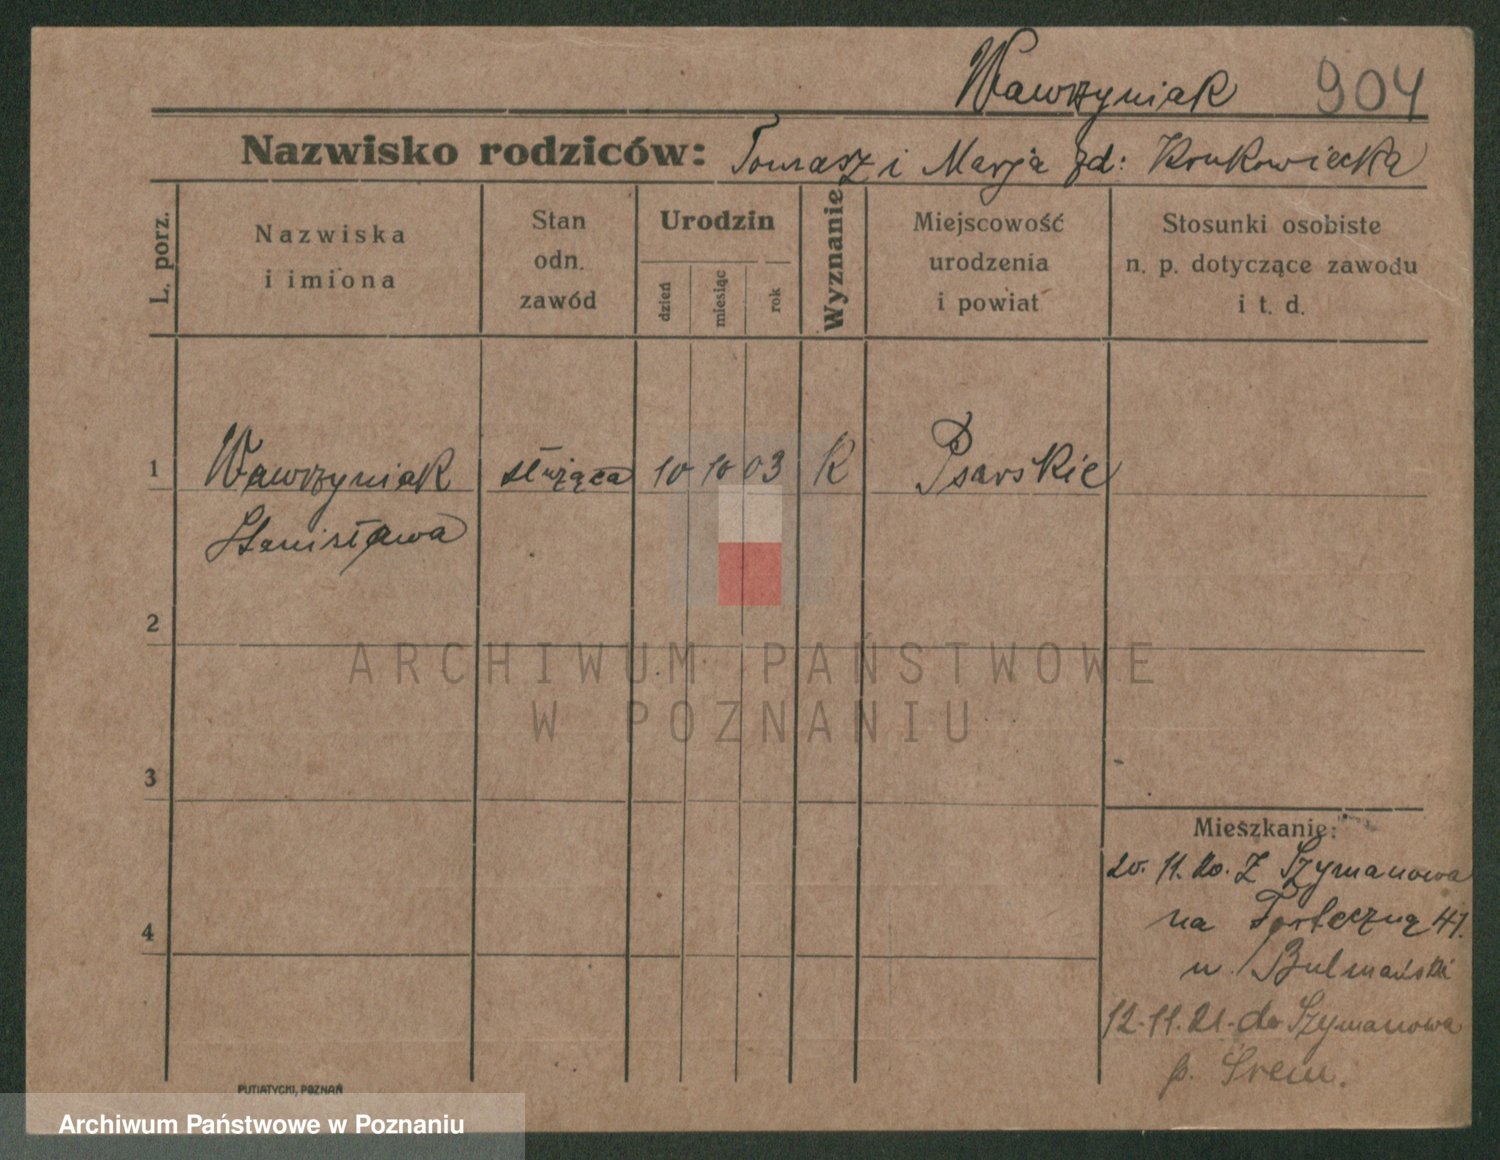 Wawrzyniak 904
Nazwisko rodziców: Tomasz i Marja zd: Krukowiecka
L. porz.
Nazwiska
i imiona
Stan
odn.
zawód
Urodzin
dzień
miesiąc
rok
Wyznanie
Miejscowość
urodzenia
i powiat
Stosunki osobiste
n. p. dotyczące zawodu
i t. d.
1 Wawrzyniak służąca 10 10 03 K Psarskie
Stanisława
2
3
4
Mieszkanie:
20. 11. 20. Z Szymanowa
na Forteczną 41.
u Bulmański
12.11.21. do Szymanowa
p. Śrem.
PUTIATYCKI, POZNAŃ
ARCHIWUM PAŃSTWOWE
W POZNANIU
Archiwum Państwowe w Poznaniu